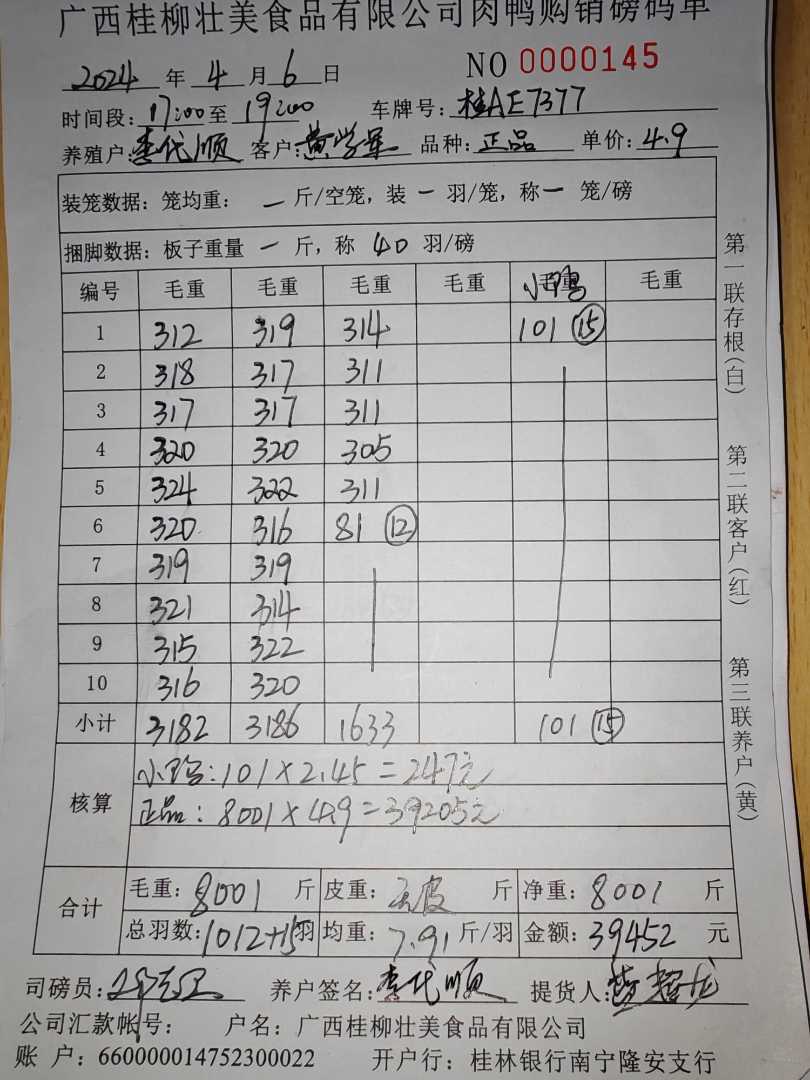 广西桂柳壮美食品有限公司肉鸭购销磅码单
2024 年 4 月 6 日 NO 0000145
时间段: 17:00 至 19:00 车牌号: 桂AE7377
养殖户: 李代顺 客户: 黄学军 品种: 正品 单价: 4.9
装笼数据: 笼均重: 一 斤/空笼, 装 一 羽/笼, 称 一 笼/磅
捆脚数据: 板子重量 一 斤, 称 40 羽/磅
编号 毛重 毛重 毛重 毛重 小鸭 毛重
1 312 319 314 101 ⑮
2 318 317 311
3 317 317 311
4 320 320 305
5 324 322 311
6 320 316 81 ⑫
7 319 319
8 321 314
9 315 322
10 316 320
小计 3182 3186 1633 101 ⑮
核算
小鸭: 101×2.45=247元
正品: 8001×4.9=39205元
合计
毛重: 8001 斤 皮重: 无皮 斤 净重: 8001 斤
总羽数: 1012+15羽 均重: 7.91 斤/羽 金额: 39452 元
司磅员: 养户签名: 李代顺 提货人:
公司汇款帐号: 户名: 广西桂柳壮美食品有限公司
账 户: 660000014752300022 开户行: 桂林银行南宁隆安支行
第一联存根(白)
第二联客户(红)
第三联养户(黄)